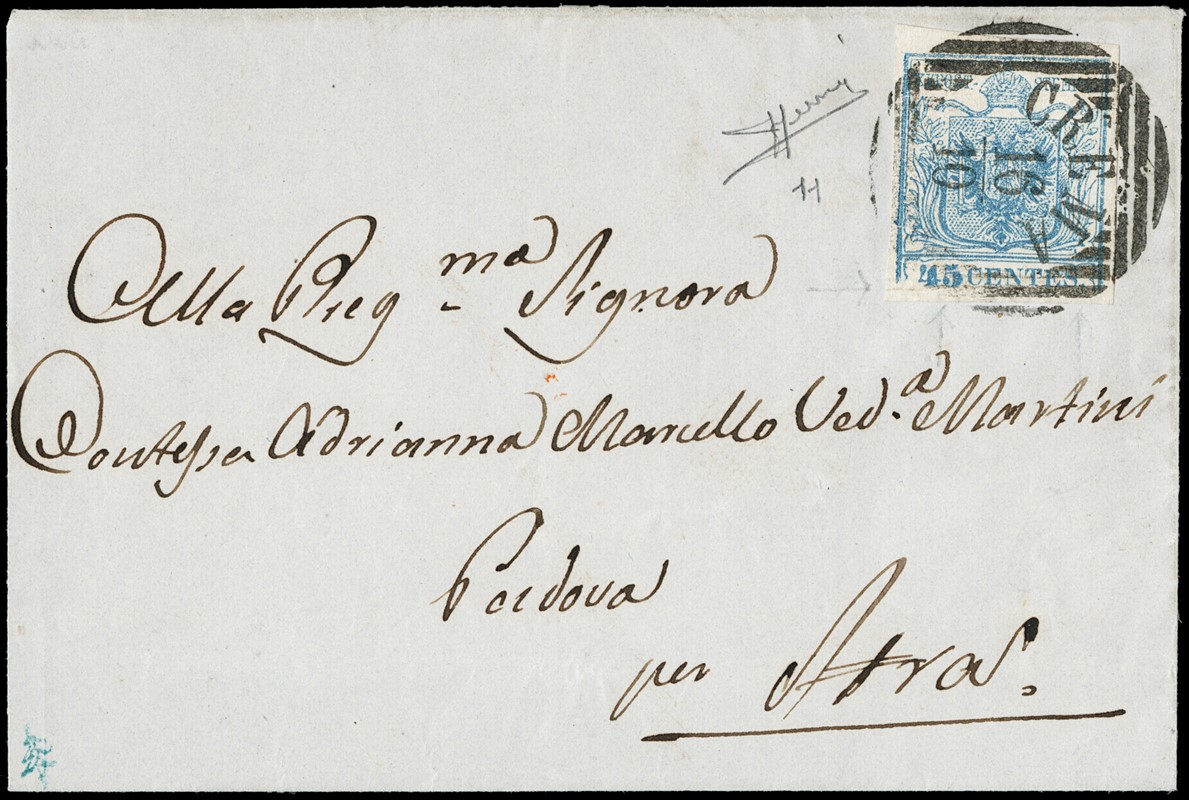 CREMA
16
10
45 CENTES.
Alla Preg.ma Signora
Contessa Adrianna Marcello Ved.a Martini
Padova
per Stra.